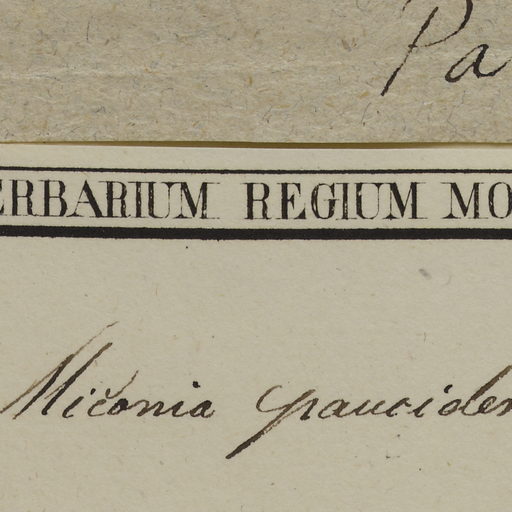 Pa
ERBARIUM REGIUM MO
Miconia pauciden